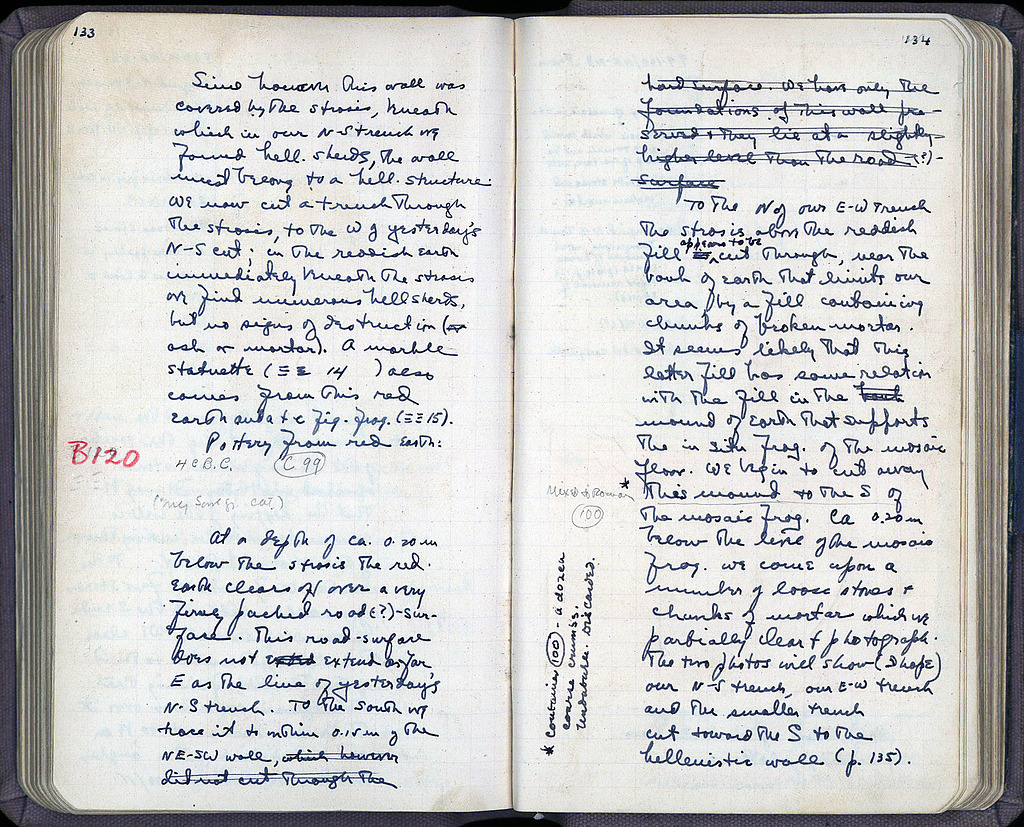 133
Since however this wall was
covered by the strosis, beneath
which in our N-S trench we
found hell. sherds, the wall
must belong to a hell. structure
We now cut a trench through
the strosis, to the W of yesterday's
N-S cut; in the reddish earth
immediately beneath the strosis
we find numerous hell sherds,
but no signs of destruction (no
ash or mortar). A marble
statuette (ΞΞ 14 ) also
comes from this red
earth and a t c fig. frag. (ΞΞ 15).
Pottery from red earth:
B120
4 c B.C. C 99
ΞΞ
cat.)
At a depth of ca. 0.20 m
below the strosis the red.
earth clears off over a very
firmly packed road(?)-sur-
face. This road-surface
does not extend as far
E as the line of yesterday's
N-S trench. To the South we
trace it to within 0.15 m of the
NE-SW wall, which however
did not cut through the
134
hard surface. We have only the
foundations of this wall pre-
served & they lie at a slightly
higher level than the road-(?)-
surface
To the N of our E-W trench
the strosis above the reddish
fill appears to be cut through, near the
bank of earth that limits our
area, by a fill containing
chunks of broken mortar.
It seems likely that this
latter fill has some relation
with the fill in the bank
mound of earth that supports
the in situ frag. of the mosaic
floor. We begin to cut away
this mound to the S of
the mosaic frag. Ca 0.20 m
below the level of the mosaic
frag. we come upon a
number of loose stones +
chunks of mortar which we
partially clear & photograph.
The two photos will show (I hope)
our N-S trench, our E-W trench
and the smaller trench
cut toward the S to the
hellenistic wall (p. 135).
Mixed to Roman *
100
* Container 100 - a dozen
coarse crumbs.
Undatable. Discarded.